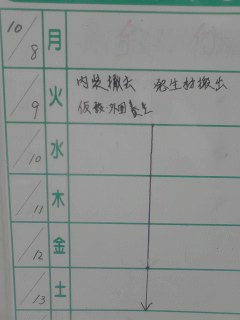 10/8 月
/9 火 内装撤去 発生材搬出
仮設・外囲養生
/10 水
/11 木
/12 金
/13 土